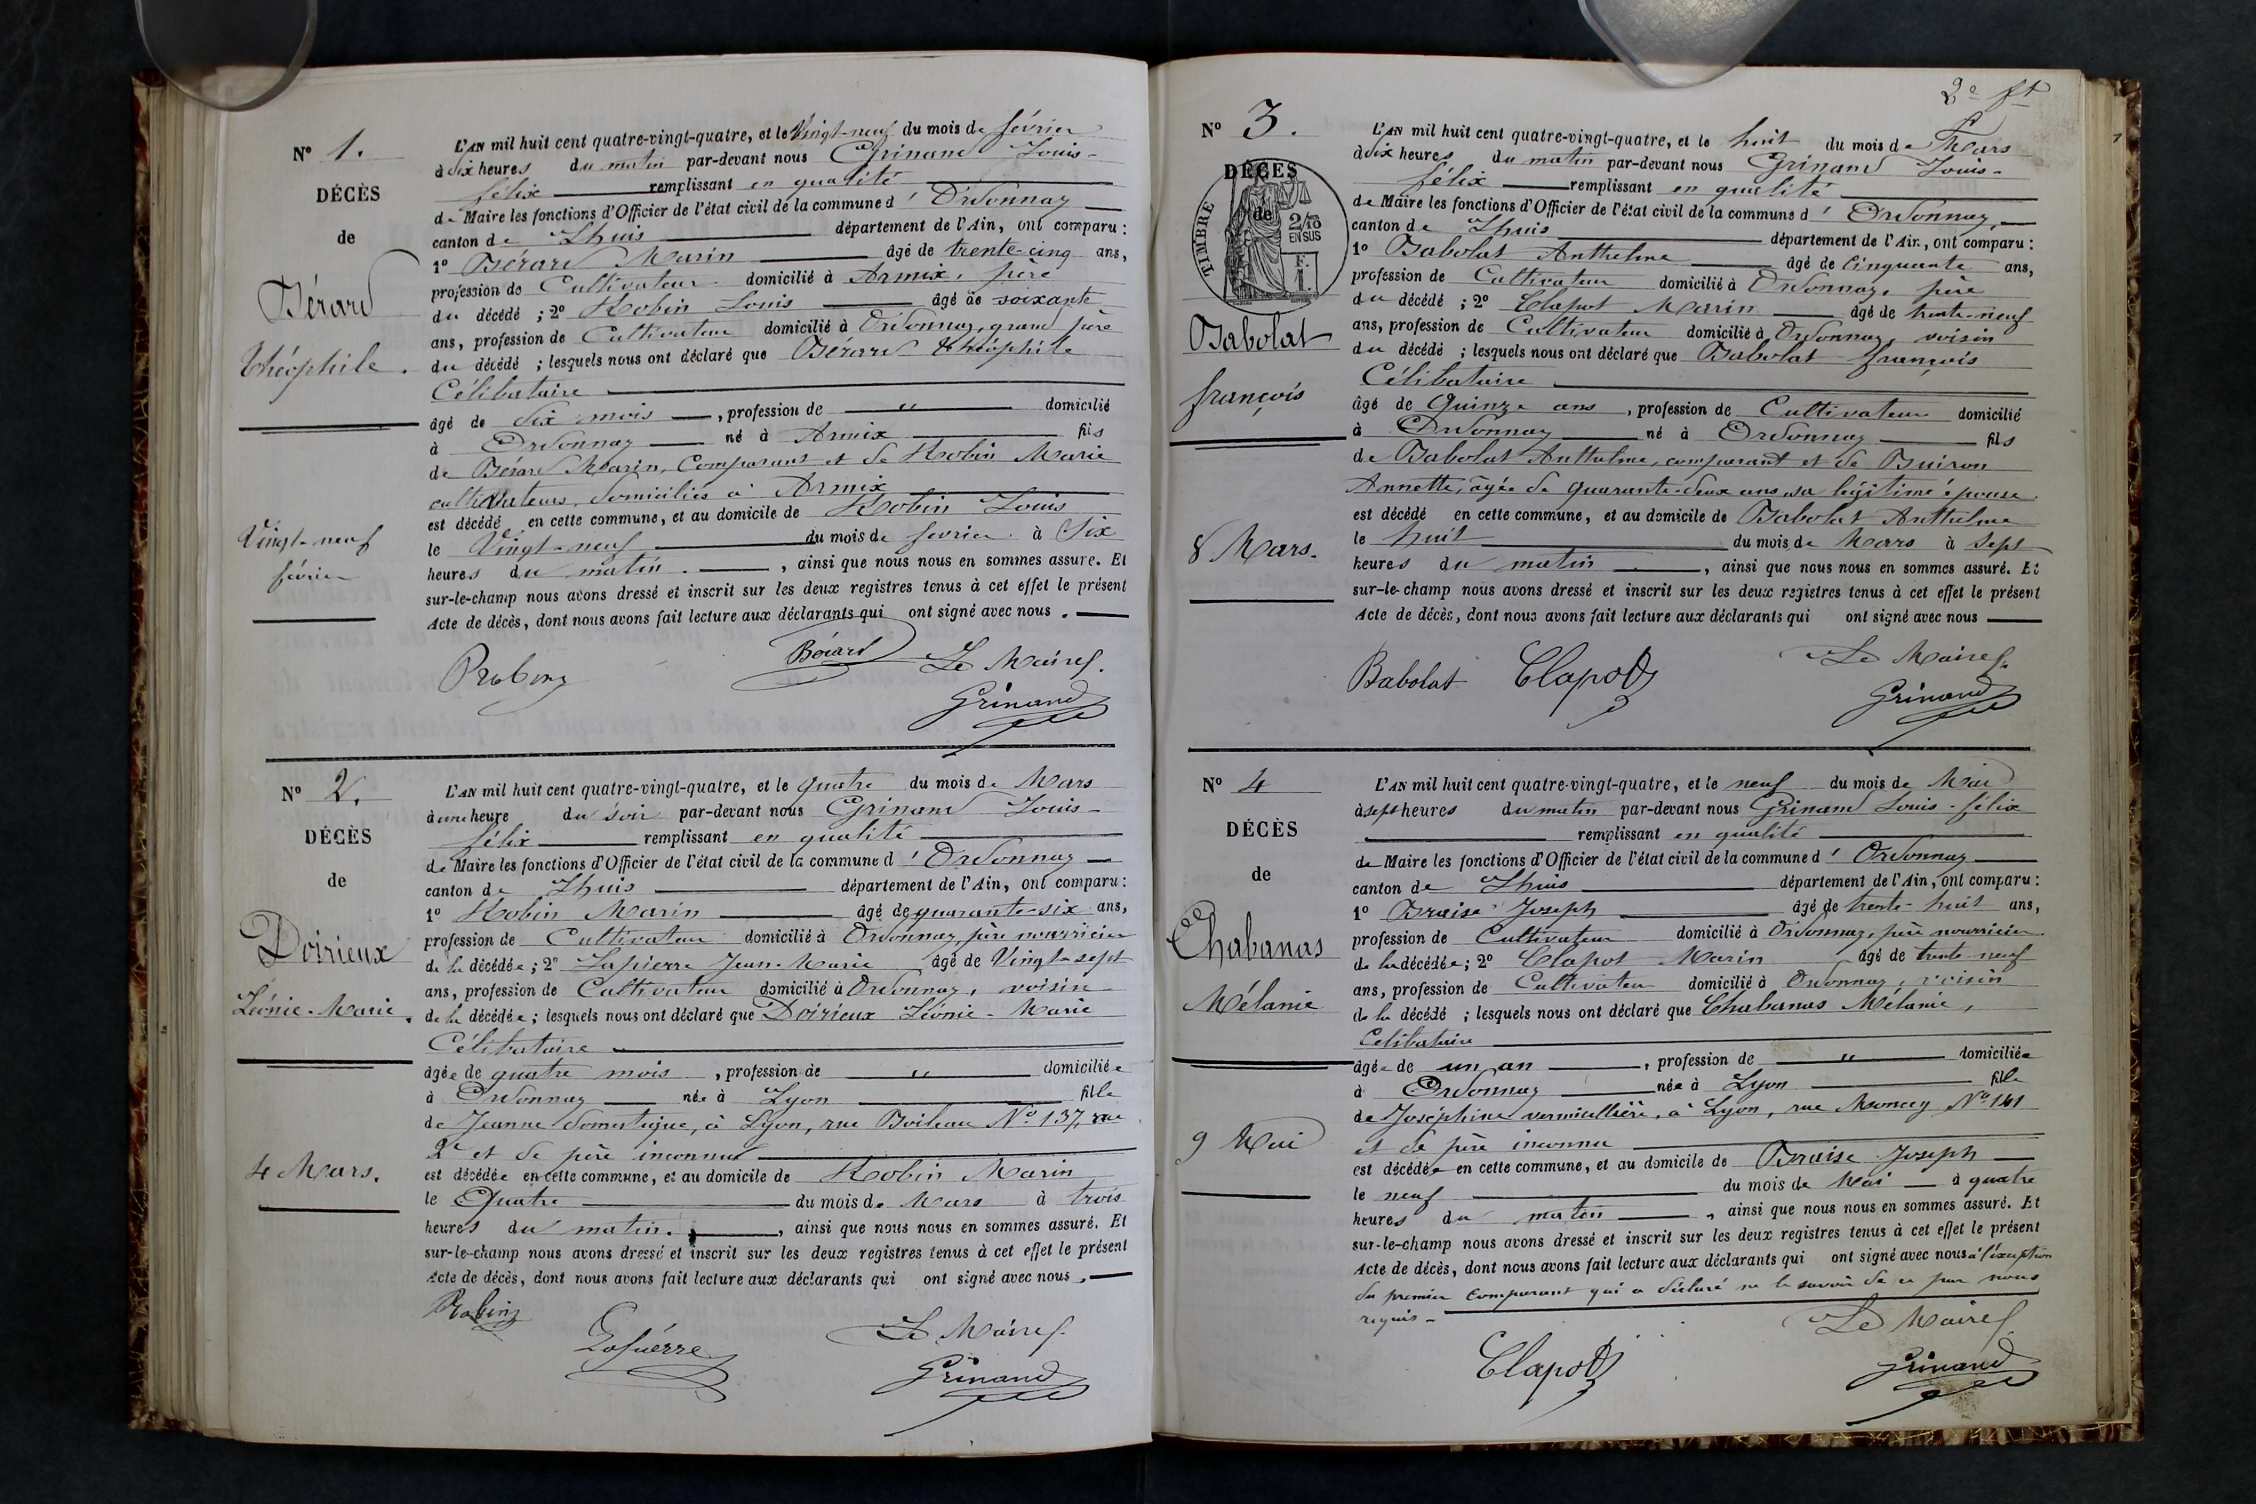 N° 1.
DÉCÈS
de
Bérard
Théophile.
Vingt-neuf
février
L'AN mil huit cent quatre-vingt-quatre, et le Vingt-neuf du mois de février
à dix heures du matin par-devant nous Grinand Louis-
félix remplissant en qualité
de Maire les fonctions d'Officier de l'état civil de la commune d'Ordonnaz
canton de Lhuis département de l'Ain, ont comparu :
1° Bérard Marin âgé de trente-cinq ans,
profession de Cultivateur domicilié à Armix, père
du décédé ; 2° Robin Louis âgé de soixante
ans, profession de Cultivateur domicilié à Ordonnaz, grand père
du décédé ; lesquels nous ont déclaré que Bérard Théophile
Célibataire
âgé de six mois, profession de " domicilié
à Ordonnaz né à Armix fils
de Bérard Marin, Comparant et de Robin Marie
cultivateurs, domiciliés à Armix
est décédé en cette commune, et au domicile de Robin Louis
le Vingt-neuf du mois de fevrier à Six
heures du matin. , ainsi que nous nous en sommes assuré. Et
sur-le-champ nous avons dressé et inscrit sur les deux registres tenus à cet effet le présent
Acte de décès, dont nous avons fait lecture aux déclarants qui ont signé avec nous.
Bérard Le Maire
Grinand
N° 2.
DÉCÈS
de
Doirieux
Léonie-Marie.
4 Mars.
L'AN mil huit cent quatre-vingt-quatre, et le quatre du mois de Mars
à une heure du soir par-devant nous Grinand Louis-
félix remplissant en qualité
de Maire les fonctions d'Officier de l'état civil de la commune d'Ordonnaz
canton de Lhuis département de l'Ain, ont comparu :
1° Robin Marin âgé de quarante-six ans,
profession de Cultivateur domicilié à Ordonnaz, père nourricier
de la décédée ; 2° Lapierre Jean-Marie âgé de Vingt-sept
ans, profession de Cultivateur domicilié à Ordonnaz, voisin
de la décédée ; lesquels nous ont déclaré que Doirieux Léonie-Marie
Célibataire
âgée de quatre mois, profession de " domiciliée
à Ordonnaz née à Lyon fille
de Jeanne domestique, à Lyon, rue Boileau N° 137,
et de père inconnu
est décédée en cette commune, et au domicile de Robin Marin
le Quatre du mois de Mars à trois
heures du matin. , ainsi que nous nous en sommes assuré. Et
sur-le-champ nous avons dressé et inscrit sur les deux registres tenus à cet effet le présent
Acte de décès, dont nous avons fait lecture aux déclarants qui ont signé avec nous.
Robin
Le Maire
Grinand
2e ft
N° 3.
DÉCÈS
de
TIMBRE
2/10
EN SUS
F.
1.
Babolat
françois
8 Mars.
L'AN mil huit cent quatre-vingt-quatre, et le huit du mois de Mars
à dix heures du matin par-devant nous Grinand Louis-
félix remplissant en qualité
de Maire les fonctions d'Officier de l'état civil de la commune d'Ordonnaz,
canton de Lhuis département de l'Ain, ont comparu :
1° Babolat Anthelme âgé de Cinquante ans,
profession de Cultivateur domicilié à Ordonnaz, père
du décédé ; 2° Clapot Marin âgé de trente-neuf
ans, profession de Cultivateur domicilié à Ordonnaz, voisin
du décédé ; lesquels nous ont déclaré que Babolat françois
Célibataire
âgé de Quinze ans, profession de Cultivateur domicilié
à Ordonnaz né à Ordonnaz fils
de Babolat Anthelme, comparant et de Buiron
Annette, âgée de quarante-deux ans, sa légitime épouse.
est décédé en cette commune, et au domicile de Babolat Anthelme
le huit du mois de Mars à sept
heures du matin , ainsi que nous nous en sommes assuré. Et
sur-le-champ nous avons dressé et inscrit sur les deux registres tenus à cet effet le présent
Acte de décès, dont nous avons fait lecture aux déclarants qui ont signé avec nous
Babolat Clapot Le Maire
Grinand
N° 4
DÉCÈS
de
Chabanas
Mélanie
9 Mai
L'AN mil huit cent quatre-vingt-quatre, et le neuf du mois de Mai
à sept heures du matin par-devant nous Grinand Louis-félix
remplissant en qualité
de Maire les fonctions d'Officier de l'état civil de la commune d'Ordonnaz
canton de Lhuis département de l'Ain, ont comparu :
1° Braise Joseph âgé de trente-huit ans,
profession de Cultivateur domicilié à Ordonnaz, père nourricier
de la décédée ; 2° Clapot Marin âgé de trente-neuf
ans, profession de Cultivateur domicilié à Ordonnaz, voisin
de la décédé ; lesquels nous ont déclaré que Chabanas Mélanie,
Celibataire
âgée de un an , profession de " domiciliée
à Ordonnaz née à Lyon fille
de Joséphine vermicellière, à Lyon, rue Moncey N° 141
et de père inconnu
est décédée en cette commune, et au domicile de Braise Joseph
le neuf du mois de Mai à quatre
heures du matin , ainsi que nous nous en sommes assuré. Et
sur-le-champ nous avons dressé et inscrit sur les deux registres tenus à cet effet le présent
Acte de décès, dont nous avons fait lecture aux déclarants qui ont signé avec nous à l'exception
du premier comparant qui a déclaré ne le savoir de ce par nous
requis -
Clapot Le Maire
Grinand